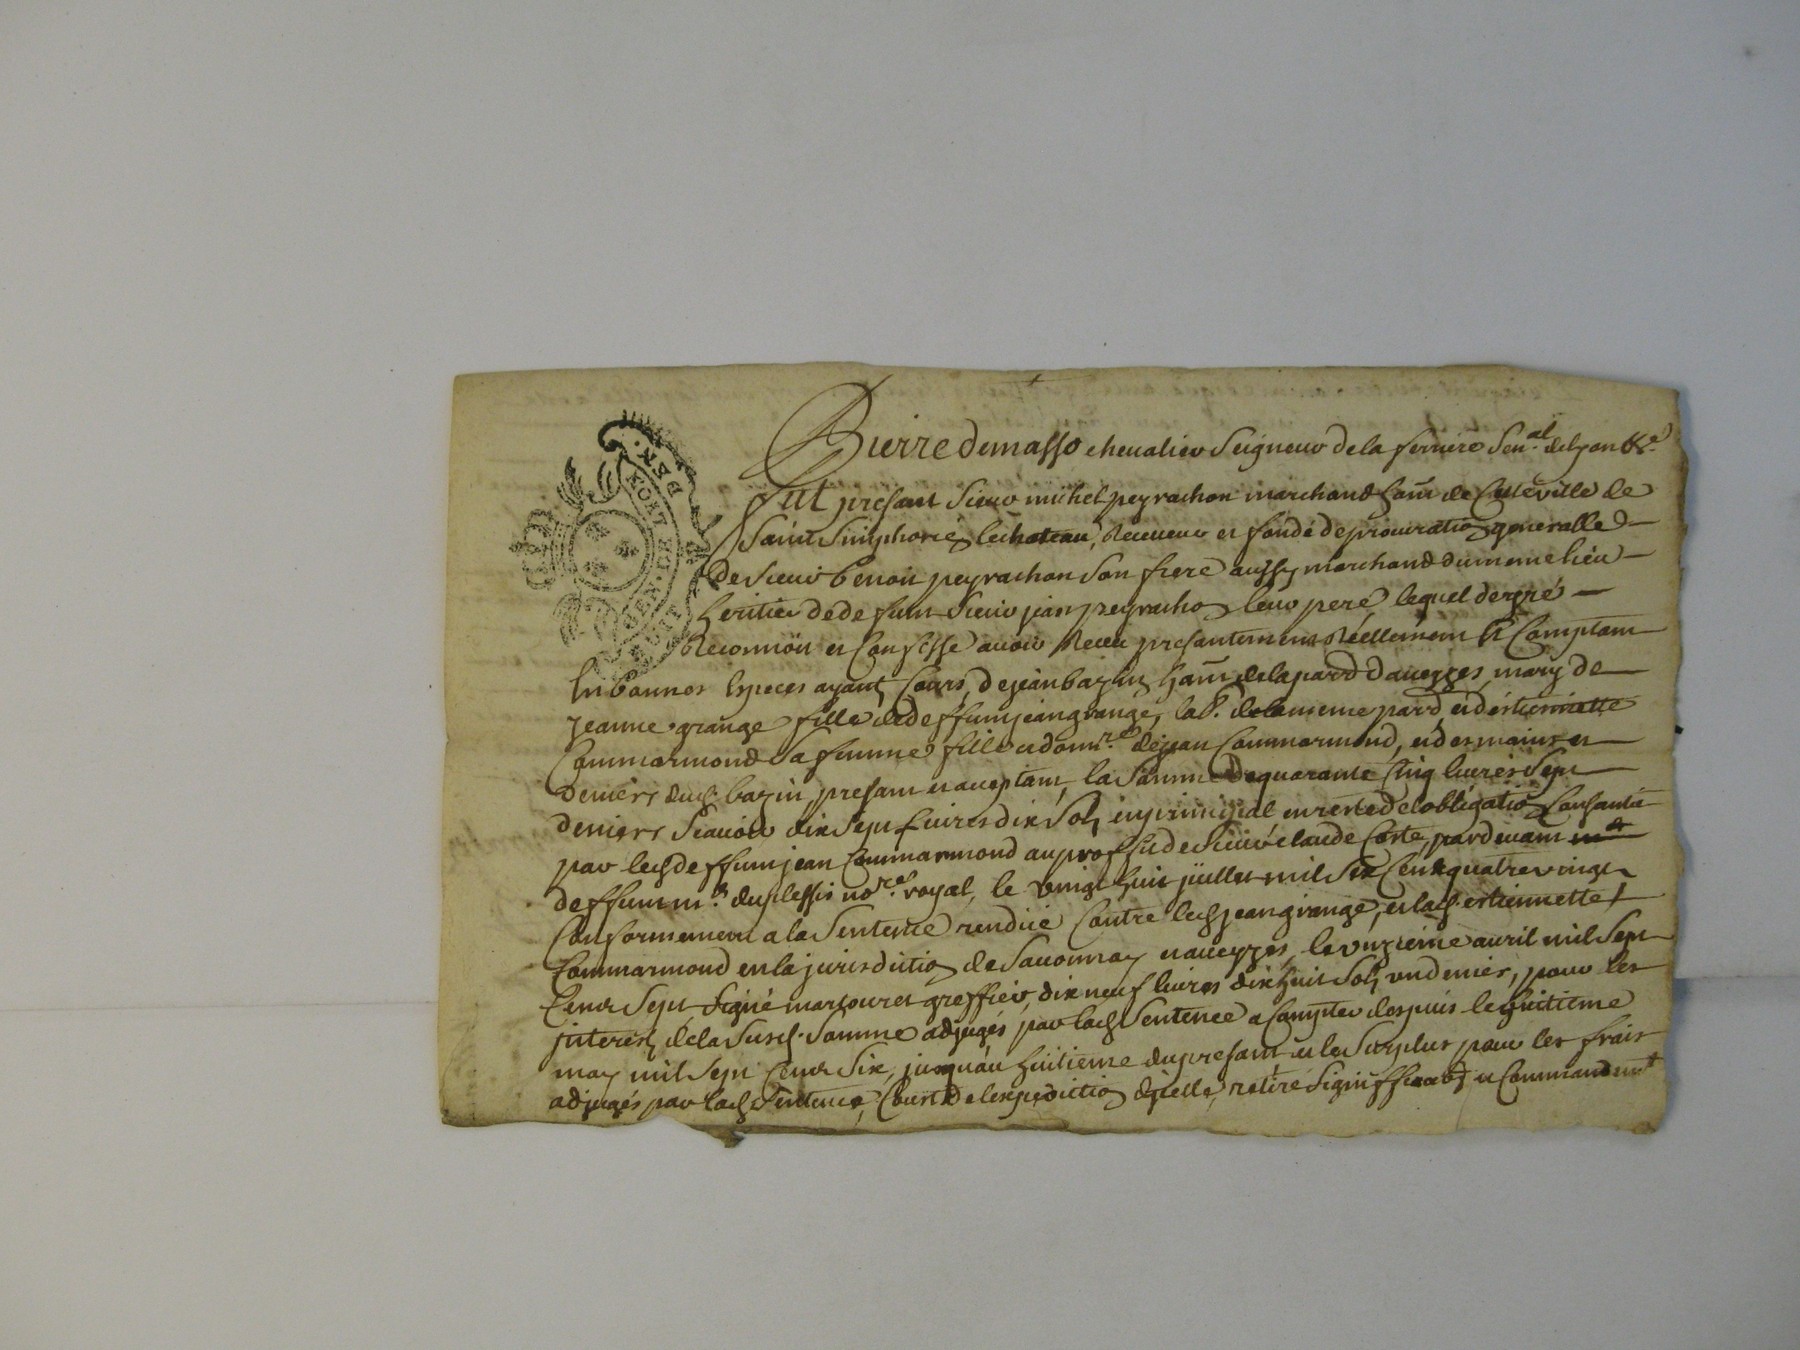 Pierre demasso chevalier Seigneur de la ferriere Sen.al de lyon &c.a
fut présant Sieur michel peyrachon marchand ham de cetteville de
Saint Simphorien lechateau, Receveur et fondé de procuration generalle
de Sieur benoit peyrachon Son frere aussy marchand du meme lieu
heritier de defunt Sieur jean peyrachon leur pere lequel de gré
Reconnoit et Confesse avoir Receu présantement Réellement Et Comptant
En bonnes Especes ayant Cours, de jean bazin ham de la parr d'aveyzes, mary de
jeanne grange fille de deffunt jean grange, lab.r de la meme parr, et d'estiennette
Commarmond Sa femme fille et donn.re de jean Commarmond, et des mains et
deniers dud. bazin, présant et acceptant, la Somme de quarante Cinq livres Sept
deniers Scavoir dix Sept livres dix Sols en principal en reste de l'obligation Consantie
par led. deffunt jean Commarmond au proffit de Sieur claude Coste, pardevant
deffunt m.e duplessis no.re royal, le vingt huit juillet mil Six Cent quatre vingt
Conformement a la Sentence rendue Contre led. jean grange, et lad. estiennette
Commarmond en la jurisdiction de Savonnay et aveyzes, le unzieme avril mil Sept
Cent Sept Signé greffier, dix neuf livres dix huit Sols un denier, pour les
interest de la Susd. Somme adjugés par lad. Sentence a Compter despuis le huitieme
may mil Sept Cent Six, jusqu'au huitieme du présant et le Surplus pour les frais
adjugés par lad. Sentence, Coust de l'expediction d'icelle, retiré Signiffication et Commandem.t
DE LION